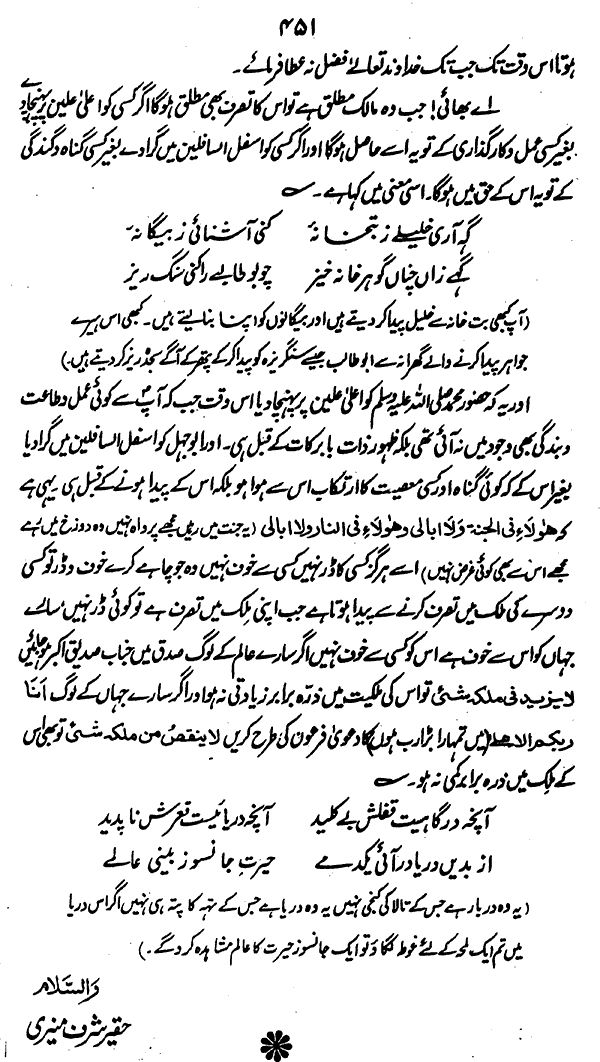 ۴۵۱
ہوتا اس وقت تک جب تک خداوند تعالےٰ فضل نہ عطا فرمائے۔
اے بھائی! جب وہ مالک مطلق ہے تو اس کا تصرف بھی مطلق ہوگا اگر کسی کو اعلیٰ علیین پر پہنچا دے
بغیر کسی عمل و کارگذاری کے تو یہ اسے حاصل ہوگا اور اگر کسی کو اسفل السافلین میں گرا دے بغیر کسی گناہ و گندگی
کے تو یہ اس کے حق میں ہوگا۔ اسی معنی میں کہا ہے۔
گہ آری خلیلے ز بتخانۂ کنی آشنائی ز بیگانۂ
گہے زاں چناں گوہر خانہ خیز چو بوطالبے را کنی سنگ ریز
(آپ کبھی بت خانہ سے خلیل پیدا کر دیتے ہیں اور بیگانوں کو اپنا بنا لیتے ہیں۔ کبھی اس ہیرے
جواہر پیدا کرنے والے گھرانہ سے ابوطالب جیسے سنگریزہ کو پیدا کر کے پتھر کے آگے سجدہ ریز کر دیتے ہیں۔)
اور یہ کہ حضور محمد صلی اللہ علیہ وسلم کو اعلیٰ علیین پر پہنچا دیا اس وقت جب کہ آپؐ سے کوئی عمل و طاعت
و بندگی بھی وجود میں نہ آئی تھی بلکہ ظہور ذات بابرکات کے قبل ہی۔ اور ابوجہل کو اسفل السافلین میں گرا دیا
بغیر اس کے کہ کوئی گناہ اور کسی معصیت کا ارتکاب اس سے ہوا ہو بلکہ اس کے پیدا ہونے کے قبل ہی یہی ہے
کہ ھٰولاء فی الجنۃ ولا ابالی وھٰولاء فی النار ولا ابالی (یہ جنت میں رہیں مجھے پرواہ نہیں وہ دوزخ میں رہے
مجھے اس سے بھی کوئی غرض نہیں) اسے ہرگز کسی کا ڈر نہیں کسی سے خوف نہیں وہ جو چاہے کرے خوف و ڈر تو کسی
دوسرے کی ملک میں تصرف کرنے سے پیدا ہوتا ہے جب اپنی مِلک میں تصرف ہے تو کوئی ڈر نہیں سارے
جہاں کو اس سے خوف ہے اس کو کسی سے خوف نہیں اگر سارے عالم کے لوگ صدق میں جناب صدیق اکبر ہو جائیں
لا یزید فی ملکہ شئی تو اس کی ملکیت میں ذرّہ برابر زیادتی نہ ہو اور اگر سارے جہاں کے لوگ اَنَا
ربکم الاعلیٰ (میں تمہارا بڑا رب ہوں) کا دعویٰ فرعون کی طرح کریں لا ینقصُ من ملکہ شئی تو بھی اس
کے مِلک میں ذرہ برابر کمی نہ ہو۔
آنچہ درگاہیست قفلش بے کلید آنچہ دریائیست قعرش ناپدید
از بدیں دریا در آئی یکدمے حیرتِ جانسوز بینی عالمے
(یہ وہ دربار ہے جس کے تالا کی کنجی نہیں یہ وہ دریا ہے جس کے تہہ کا پتہ ہی نہیں اگر اس دریا
میں تم ایک لمحہ کے لئے غوطہ لگاؤ تو ایک جانسوز حیرت کا عالم مشاہدہ کرو گے۔)
والسّلام
حقیر شرف منیری